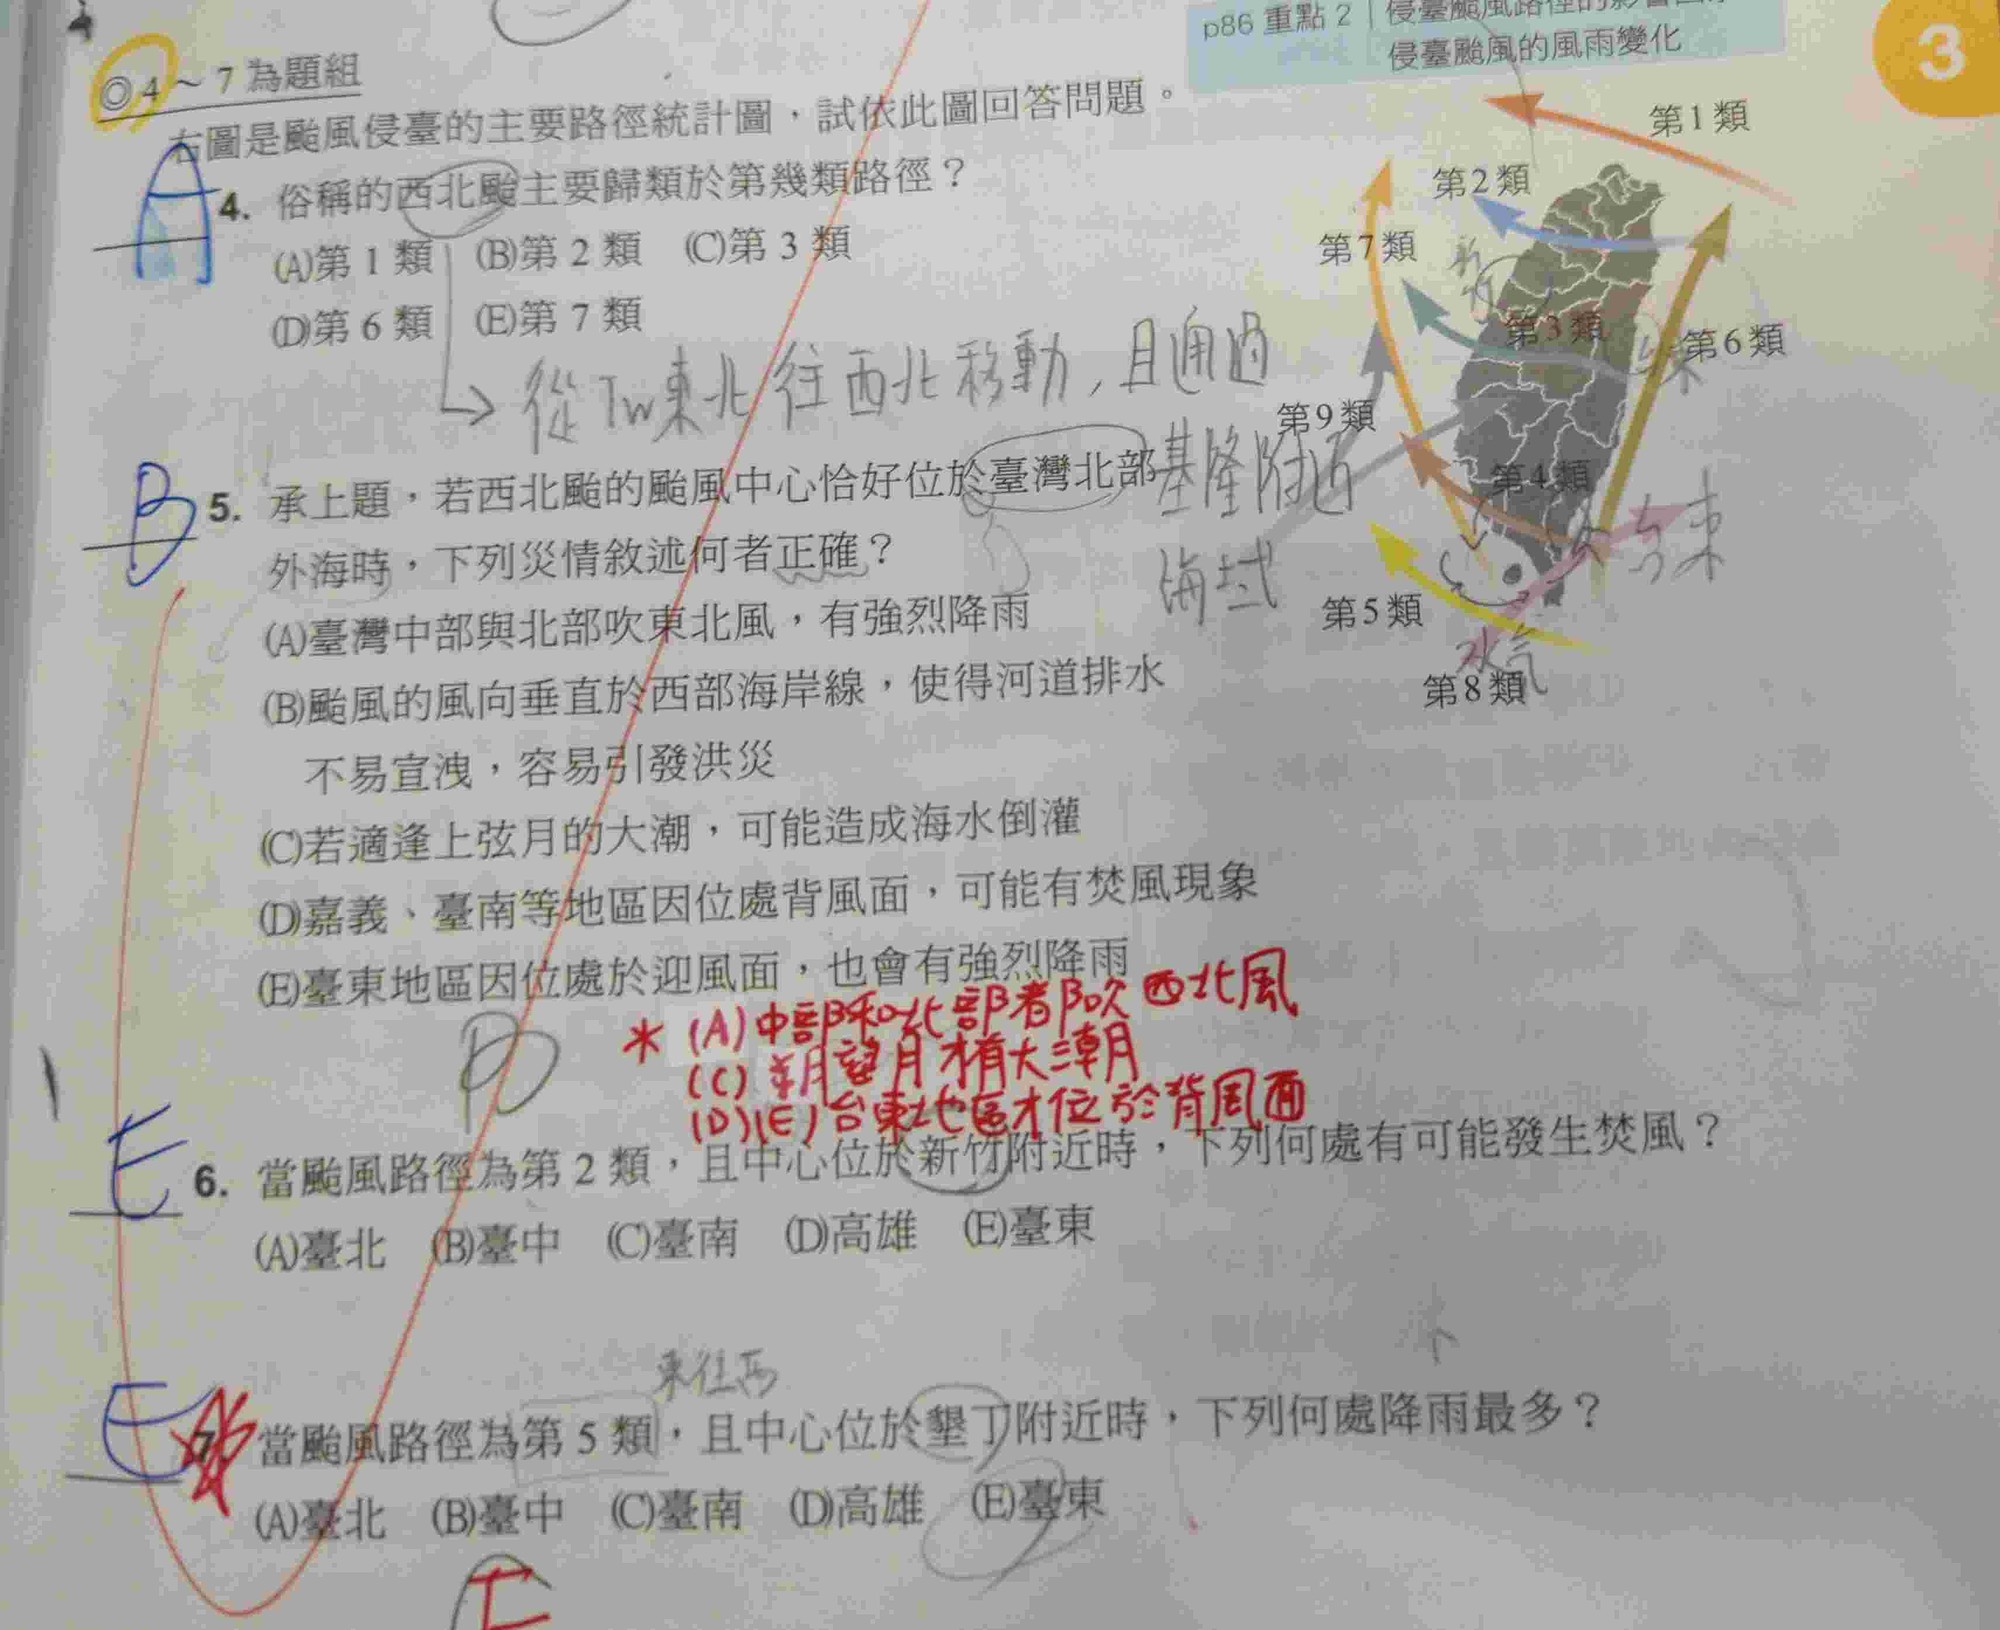 p86 重點 2
侵臺颱風的風雨變化
3
◎4～7 為題組
右圖是颱風侵臺的主要路徑統計圖，試依此圖回答問題。
A
4. 俗稱的西北颱主要歸類於第幾類路徑？
(A)第 1 類 (B)第 2 類 (C)第 3 類
(D)第 6 類 (E)第 7 類
從 Tw 東北往西北移動，且通過
基隆附近
海域
第1類
第2類
第7類
新竹
第3類
第6類
第9類
第4類
台東
第5類
水气
第8類
B
5. 承上題，若西北颱的颱風中心恰好位於臺灣北部
外海時，下列災情敘述何者正確？
(A)臺灣中部與北部吹東北風，有強烈降雨
(B)颱風的風向垂直於西部海岸線，使得河道排水
不易宣洩，容易引發洪災
(C)若適逢上弦月的大潮，可能造成海水倒灌
(D)嘉義、臺南等地區因位處背風面，可能有焚風現象
(E)臺東地區因位處於迎風面，也會有強烈降雨
* (A) 中部和北部都吹西北風
(C) 朔月望月才有大潮
(D)(E) 台東地區才位於背風面
D
E
6. 當颱風路徑為第 2 類，且中心位於新竹附近時，下列何處有可能發生焚風？
(A)臺北 (B)臺中 (C)臺南 (D)高雄 (E)臺東
東往西
E
7. 當颱風路徑為第 5 類，且中心位於墾丁附近時，下列何處降雨最多？
(A)臺北 (B)臺中 (C)臺南 (D)高雄 (E)臺東